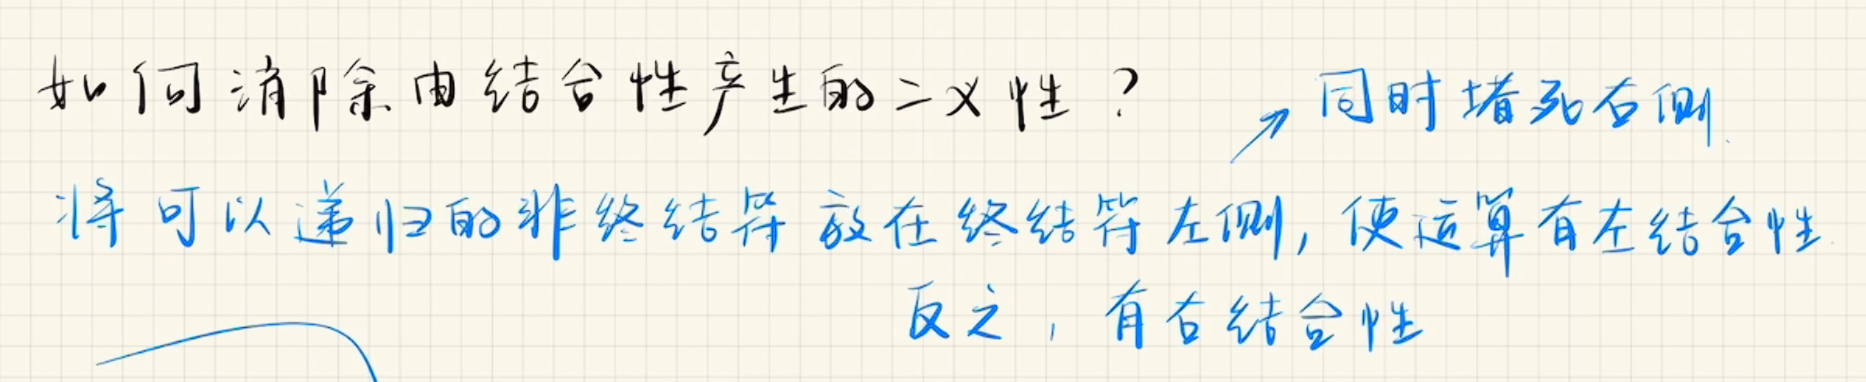 如何消除由结合性产生的二义性？
同时堵死右侧.
将可以递归的非终结符放在终结符左侧, 使运算有左结合性.
反之, 有右结合性